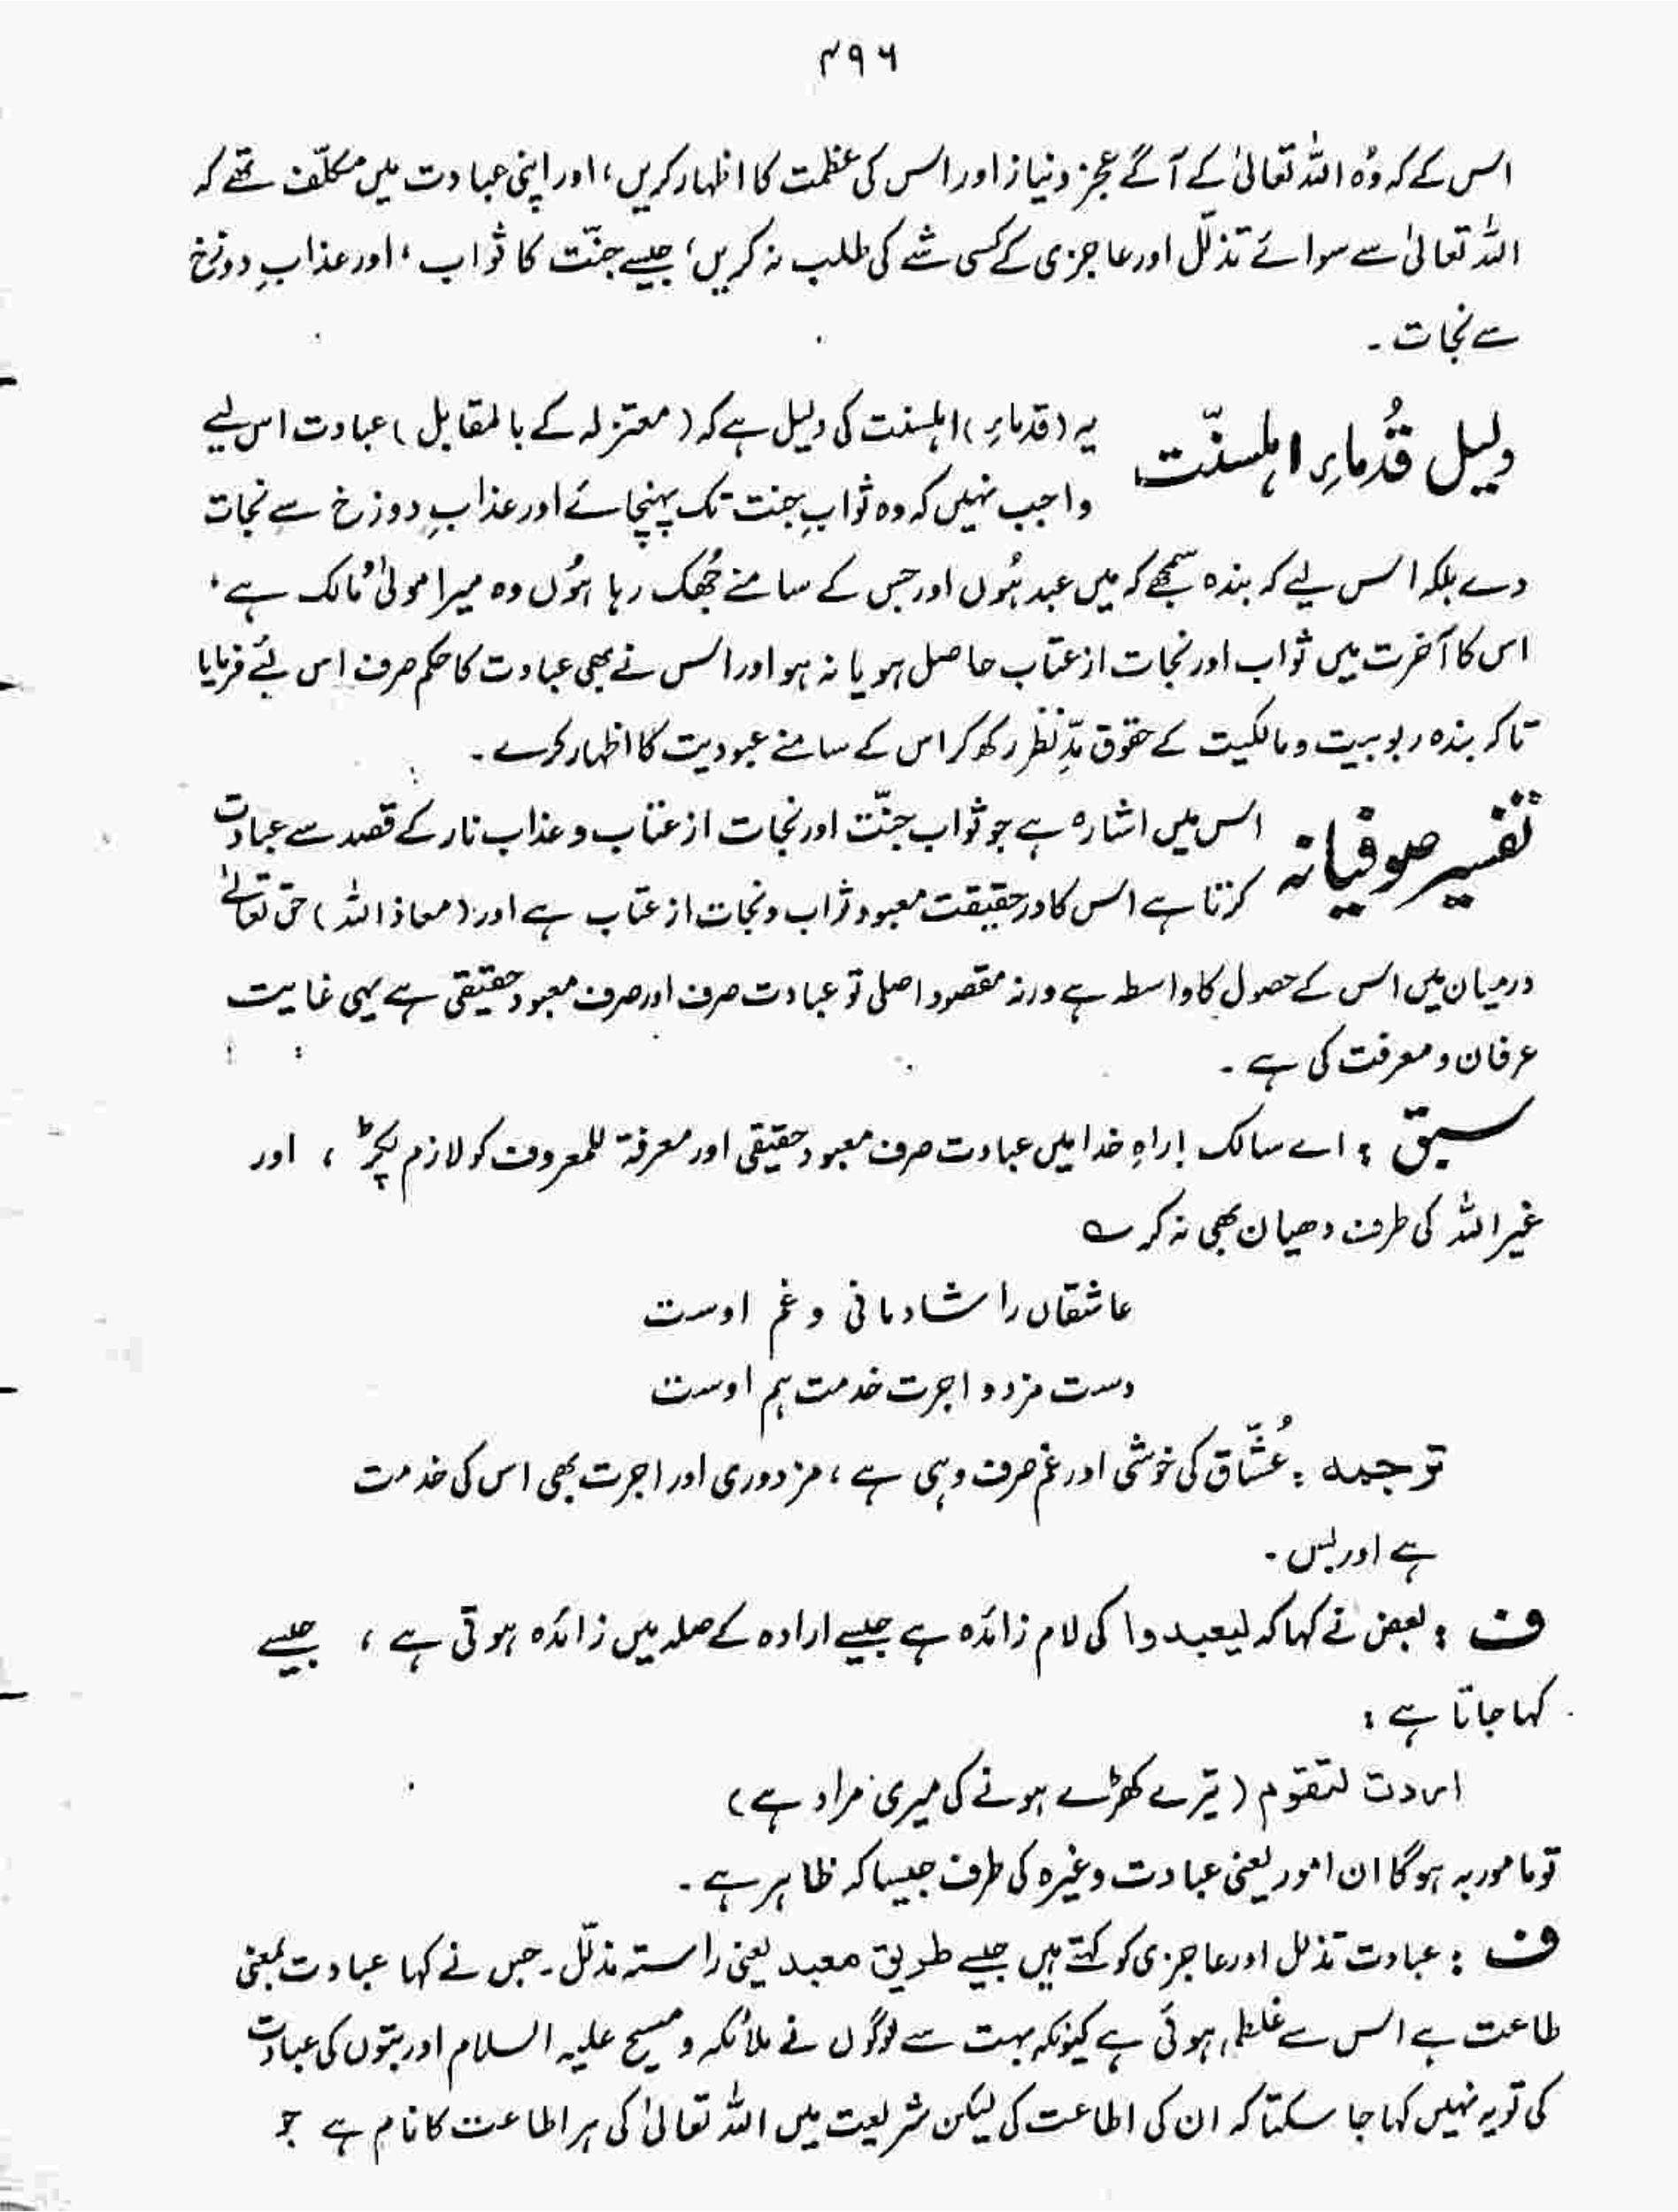 ۴۹۶
اس کے کہ وُہ اللہ تعالیٰ کے آگے عجز و نیاز اور اس کی عظمت کا اظہار کریں، اور اپنی عبادت میں مکلّف تھے کہ
اللہ تعالیٰ سے سوائے تذلّل اور عاجزی کے کسی شے کی طلب نہ کریں، جیسے جنّت کا ثواب، اور عذابِ دوزخ
سے نجات۔
دلیل قُدماءِ اہلسنّت
یہ (قدماءِ) اہلسنت کی دلیل ہے کہ (معتزلہ کے بالمقابل) عبادت اس لیے
واجب نہیں کہ وہ ثوابِ جنت تک پہنچائے اور عذابِ دوزخ سے نجات
دے بلکہ اس لیے کہ بندہ سمجھے کہ میں عبد ہُوں اور جس کے سامنے جُھک رہا ہُوں وہ میرا مولیٰ و مالک ہے،
اس کا آخرت میں ثواب اور نجات از عتاب حاصل ہو یا نہ ہو اور اس نے بھی عبادت کا حکم صرف اس لئے فرمایا
تاکہ بندہ ربوبیت و مالکیت کے حقوق مدِّنظر رکھ کر اس کے سامنے عبودیت کا اظہار کرے۔
تفسیر صوفیانہ
اس میں اشارہ ہے جو ثواب جنّت اور نجات از عتاب و عذاب نار کے قصد سے عبادت
کرتا ہے اس کا درحقیقت معبود ثواب و نجات از عتاب ہے اور (معاذ اللہ) حق تعالےٰ
درمیان میں اس کے حصول کا واسطہ ہے ورنہ مقصود اصلی تو عبادت صرف اور صرف معبود حقیقی ہے یہی غایت
عرفان و معرفت کی ہے۔
سبق : اے سالک ! راہِ خدا میں عبادت صرف معبود حقیقی اور معرفۃ للمعروف کو لازم پکڑ ، اور
غیر اللہ کی طرف دھیان بھی نہ کر ؎
عاشقاں را شادمانی و غم اوست
دست مزد و اجرت خدمت ہم اوست
ترجمہ : عُشّاق کی خوشی اور غم صرف وہی ہے، مزدوری اور اجرت بھی اس کی خدمت
ہے اور بس۔
ف : بعض نے کہا کہ لیعبدوا کی لام زائدہ ہے جیسے ارادہ کے صلہ میں زائدہ ہوتی ہے ، جیسے
کہا جاتا ہے :
اردت لتقوم (تیرے کھڑے ہونے کی میری مراد ہے)
تو مامور بہ ہوگا ان امور یعنی عبادت وغیرہ کی طرف جیسا کہ ظاہر ہے۔
ف : عبادت تذلل اور عاجزی کو کہتے ہیں جیسے طریق معبد یعنی راستہ مذلّل۔ جس نے کہا عبادت بمعنی
طاعت ہے اس سے غلطی ہوئی ہے کیونکہ بہت سے لوگوں نے ملائکہ و مسیح علیہ السلام اور بتوں کی عبادت
کی تو یہ نہیں کہا جا سکتا کہ ان کی اطاعت کی لیکن شریعت میں اللہ تعالیٰ کی ہر اطاعت کا نام ہے جو